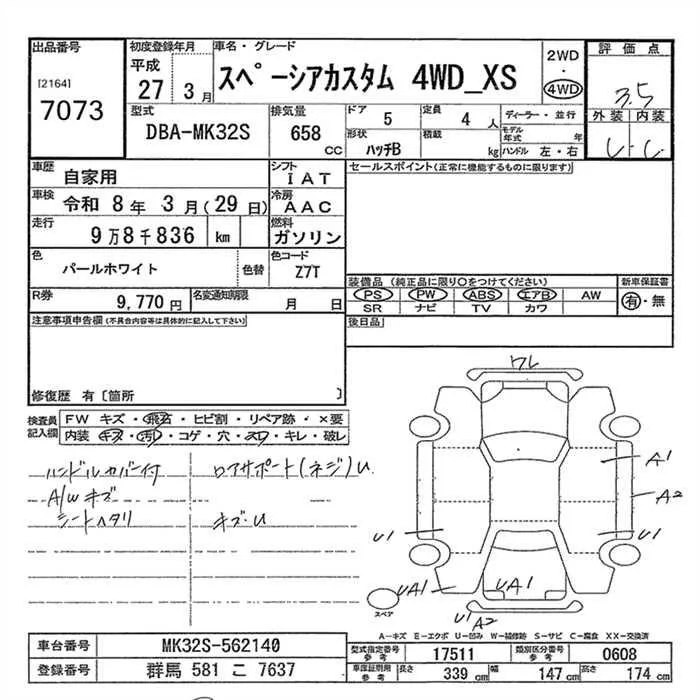 出品番号 初度登録年月 車名・グレード 2WD 評価点
[2164] 平成 ・
7073 27 3月 スペーシアカスタム 4WD_XS 4WD 3.5
型式 排気量 ドア 5 定員 4人 ディーラー・並行 外装 内装
DBA-MK32S 658 CC 形状 ハッチB 積載 kg モデル年式 年
ハンドル 左・右
車歴 自家用 シフト IAT セールスポイント(正常に機能するものに限ります)
車検 令和 8年 3月(29日) 冷房 AAC
走行 9万8千836 km 燃料 ガソリン
色 パールホワイト 色替 色コード Z7T
装備品(純正品に限り○をつけてください) 新車保証書
R券 9,770円 名変通知期限 月 日 PS PW ABS エアB AW 有・無
SR ナビ TV カワ
注意事項申告欄(不具合内容等は具体的に記入して下さい) 後日品
修復歴 有〔箇所 〕
ワレ
検査員記入欄 FW キズ・飛石・ヒビ割・リペア跡・×要
内装 キズ・汚レ・コゲ・穴・スレ・キレ・破レ
ハンドルカバー付 ロアサポート(ネジ)U
A/Wキズ
シートヘタリ キズ・U
A1
A2
U1 U1
UA1 UA1
U1 A2
スペア
A-キズ E-エクボ U-凹み W-補修跡 S-サビ C-腐食 XX-交換済
車台番号 MK32S-562140 型式指定番号 参考 17511 類別区分番号 参考 0608
登録番号 群馬 581 こ 7637 車庫証明用 参考 長さ 339 cm 幅 147 cm 高さ 174 cm